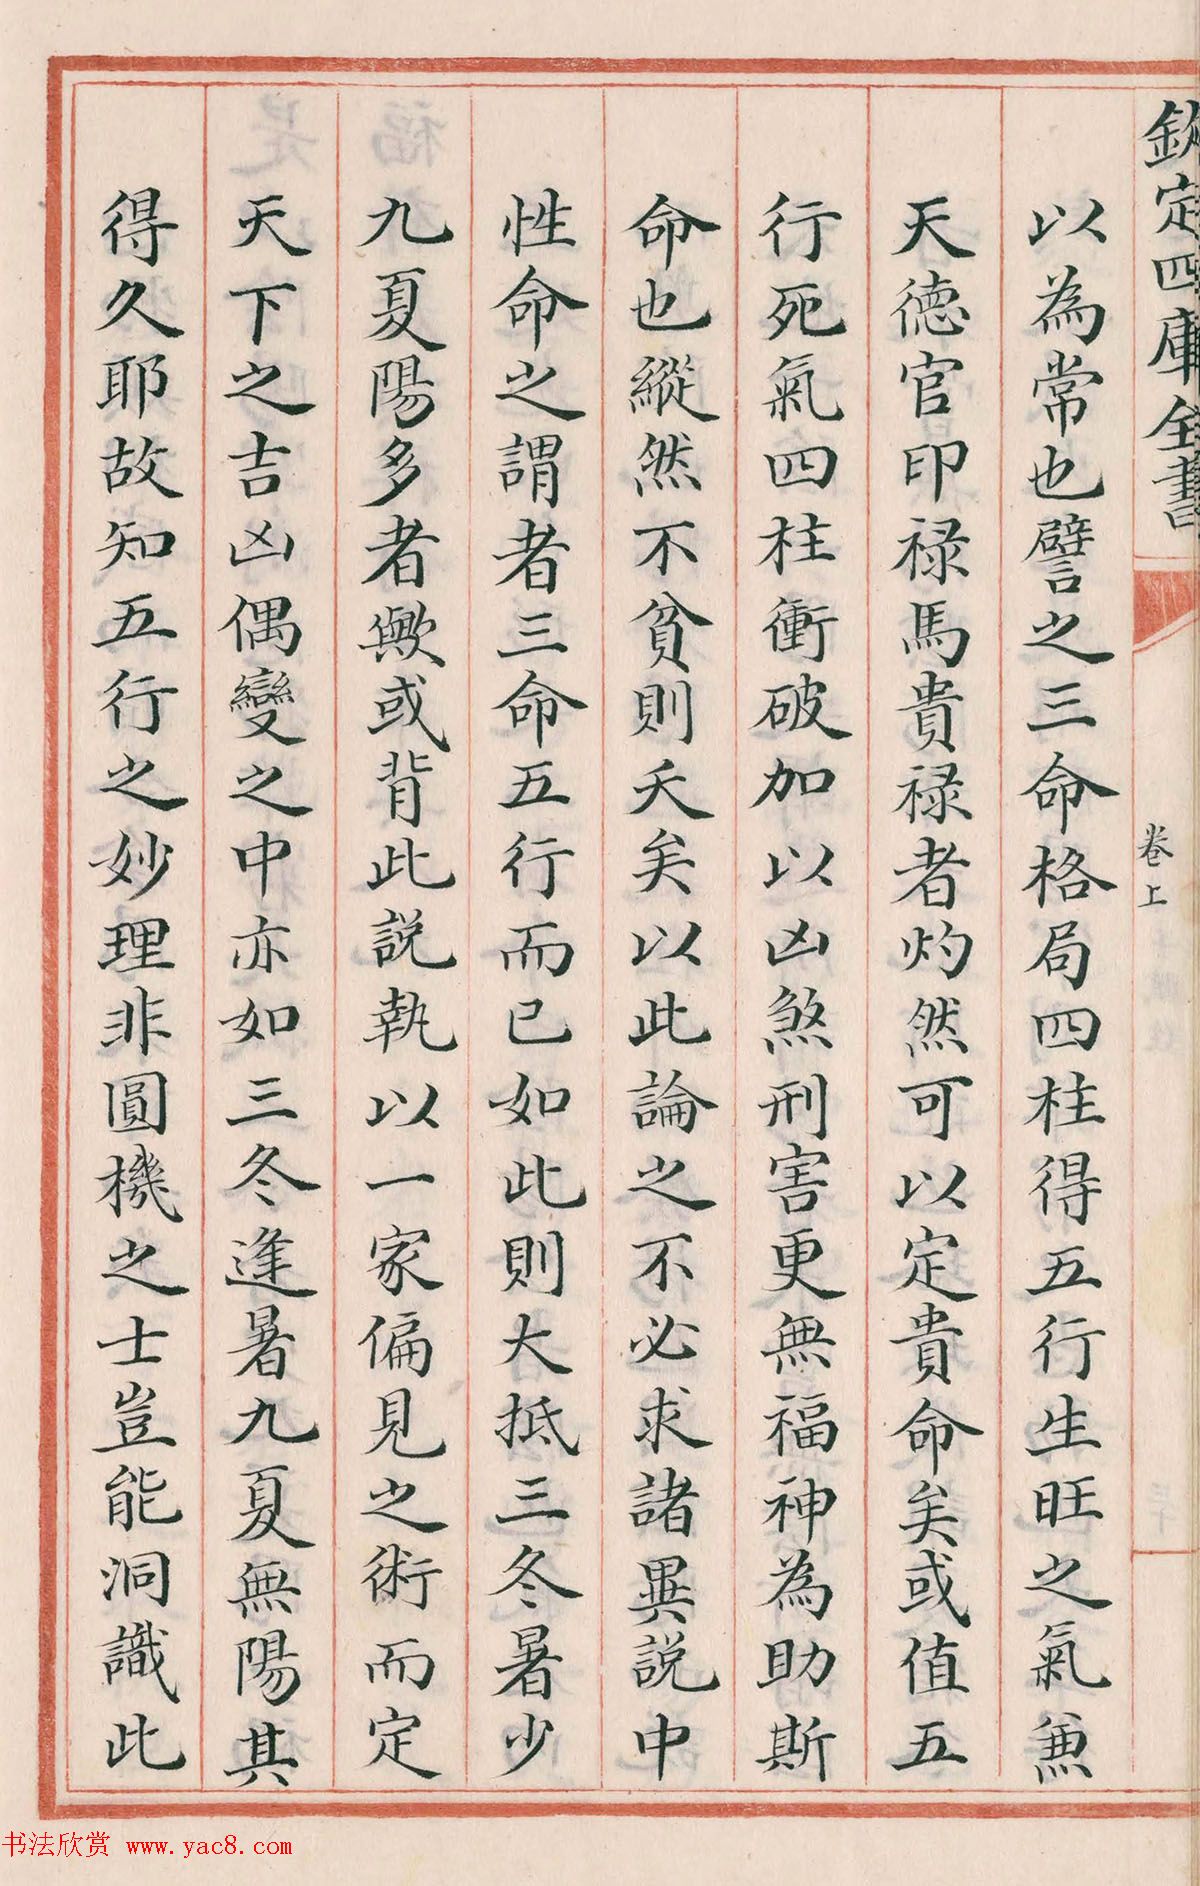 欽定四庫全書
卷上
以為常也譬之三命格局四柱得五行生旺之氣兼
天德官印祿馬貴祿者灼然可以定貴命矣或值五
行死氣四柱衝破加以凶煞刑害更無福神為助斯
命也縱然不貧則夭矣以此論之不必求諸異說中
性命之謂者三命五行而已如此則大抵三冬暑少
九夏陽多者歟或背此說執以一家偏見之術而定
天下之吉凶偶變之中亦如三冬逢暑九夏無陽其
得久耶故知五行之妙理非圓機之士豈能洞識此
书法欣赏 www.yac8.com